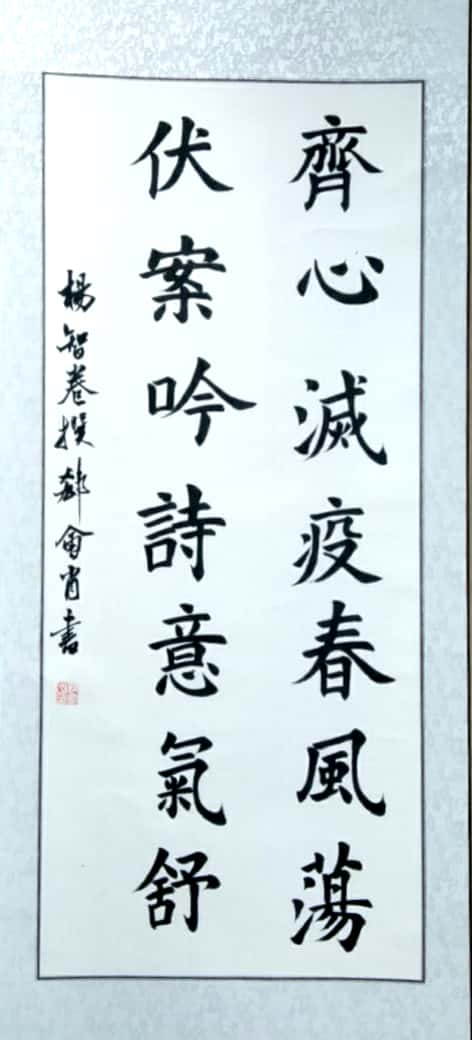 齊心滅疫春風蕩
伏案吟詩意氣舒
楊智卷撰郝會肖書